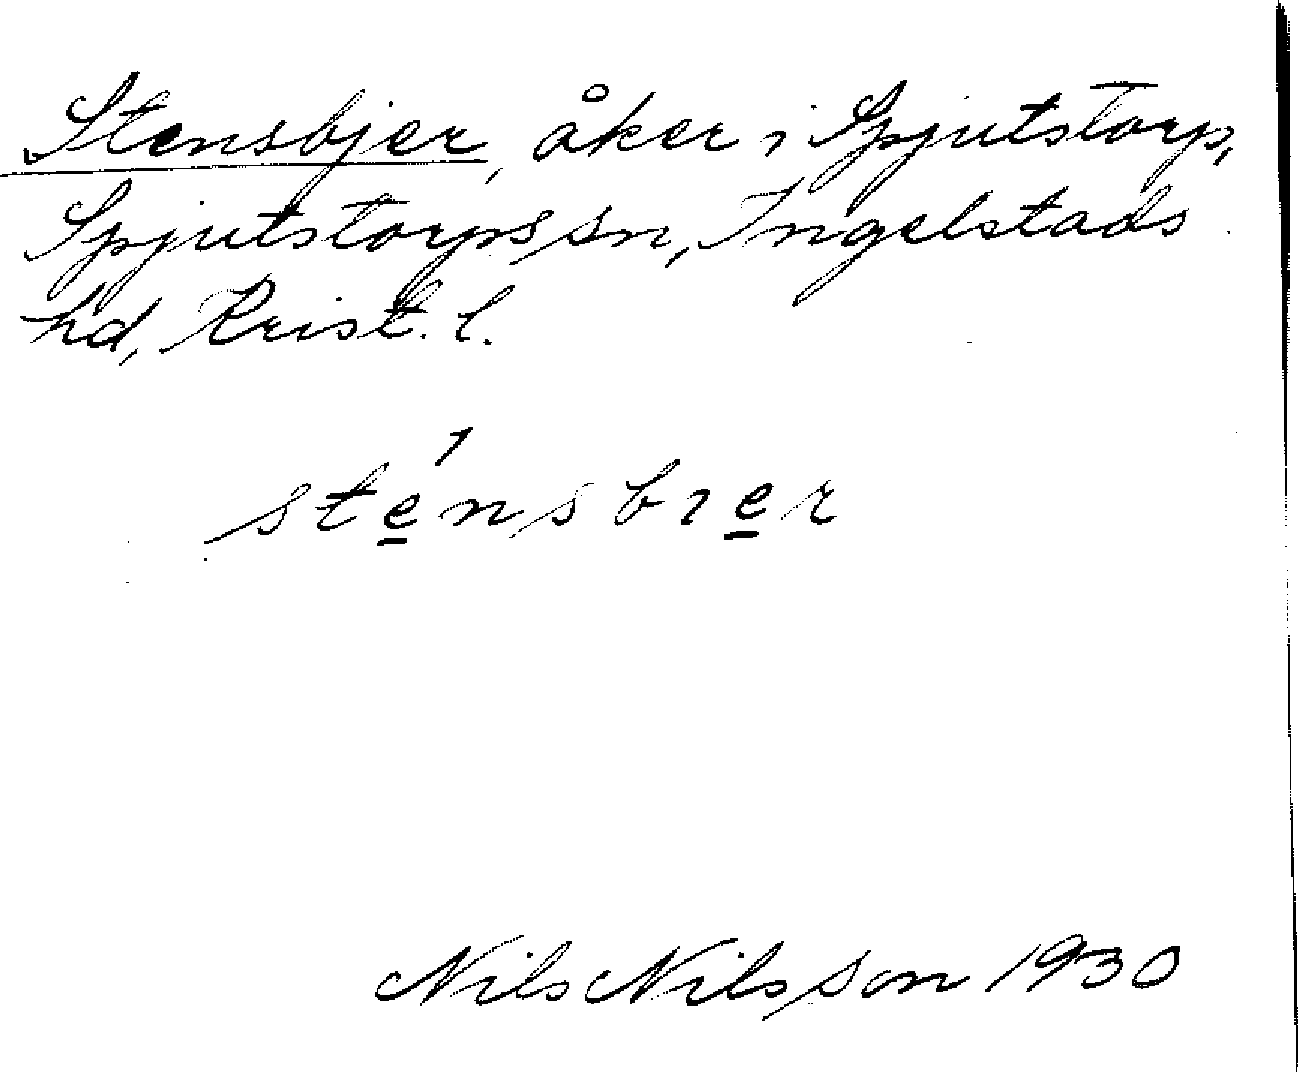 Stensbjer, åker i Spjutstorp,
Spjutstorps sn, Ingelstads
hd, Krist. l.
ste̲´nsbıe̲r
Nils Nilsson 1930